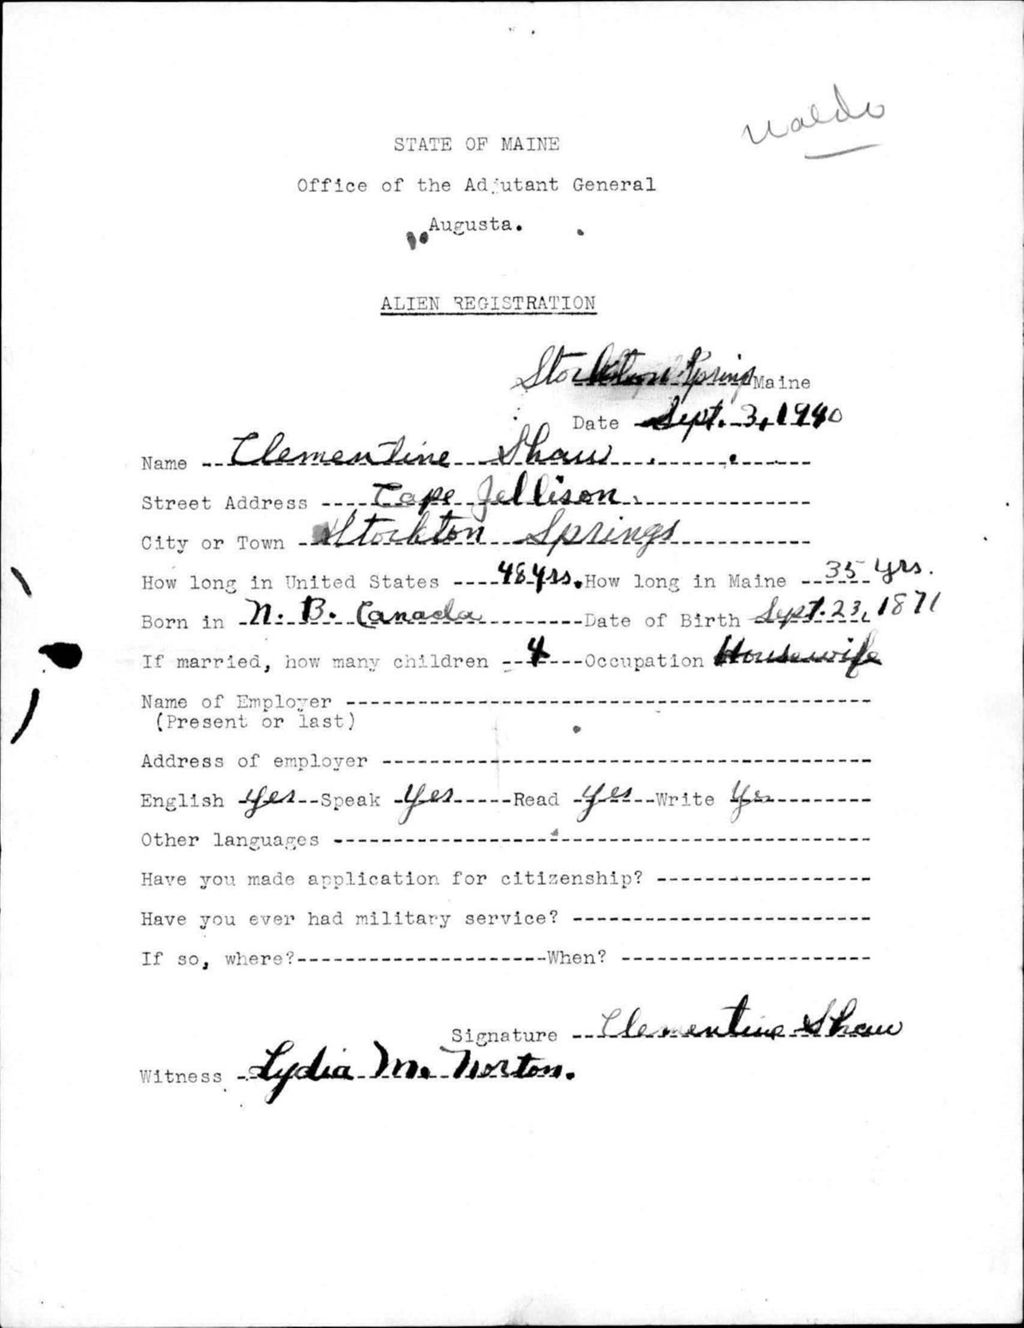 Waldo
STATE OF MAINE
Office of the Adjutant General
Augusta.
ALIEN REGISTRATION
Stockton Springs Maine
Date Sept. 3, 1940
Name Clementine Shaw
Street Address Cape Jellison.
City or Town Stockton Springs
How long in United States 48 yrs. How long in Maine 35 yrs.
Born in N. B. Canada Date of Birth Sept. 23, 1871
If married, how many children 4 Occupation Housewife
Name of Employer
(Present or last)
Address of employer
English yes Speak yes Read yes Write yes
Other languages
Have you made application for citizenship?
Have you ever had military service?
If so, where? When?
Signature Clementine Shaw
Witness Lydia M. Norton.